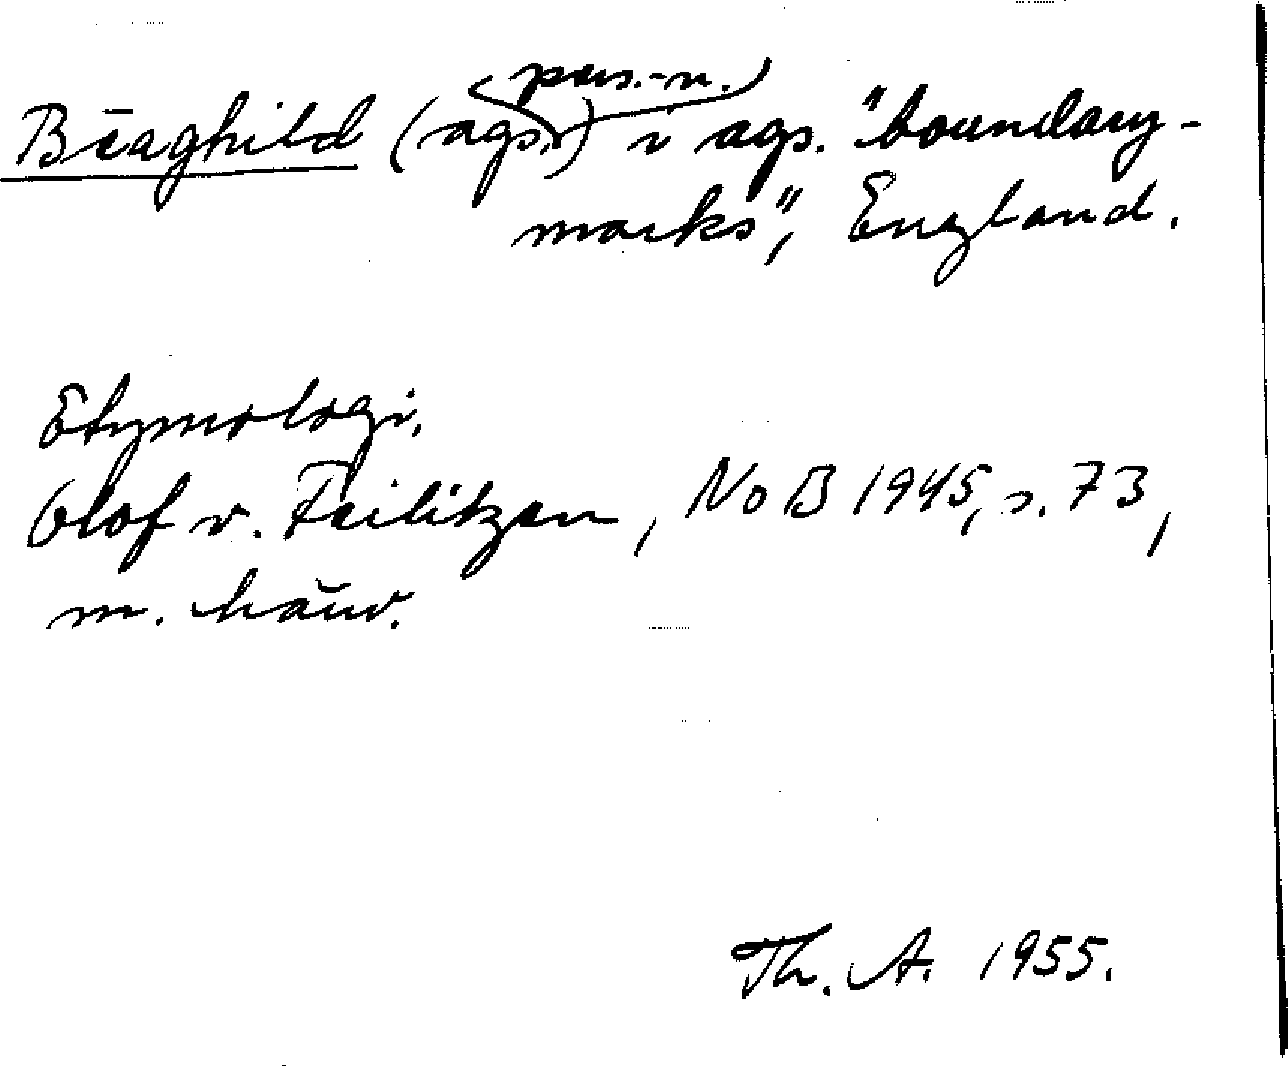 Bēaghild (ags. pers.-n.) i ags. "boundary-
marks", England.
Etymologi.
Olof v. Feilitzen, NoB 1945, s. 73,
m. hänv.
Th. A. 1955.